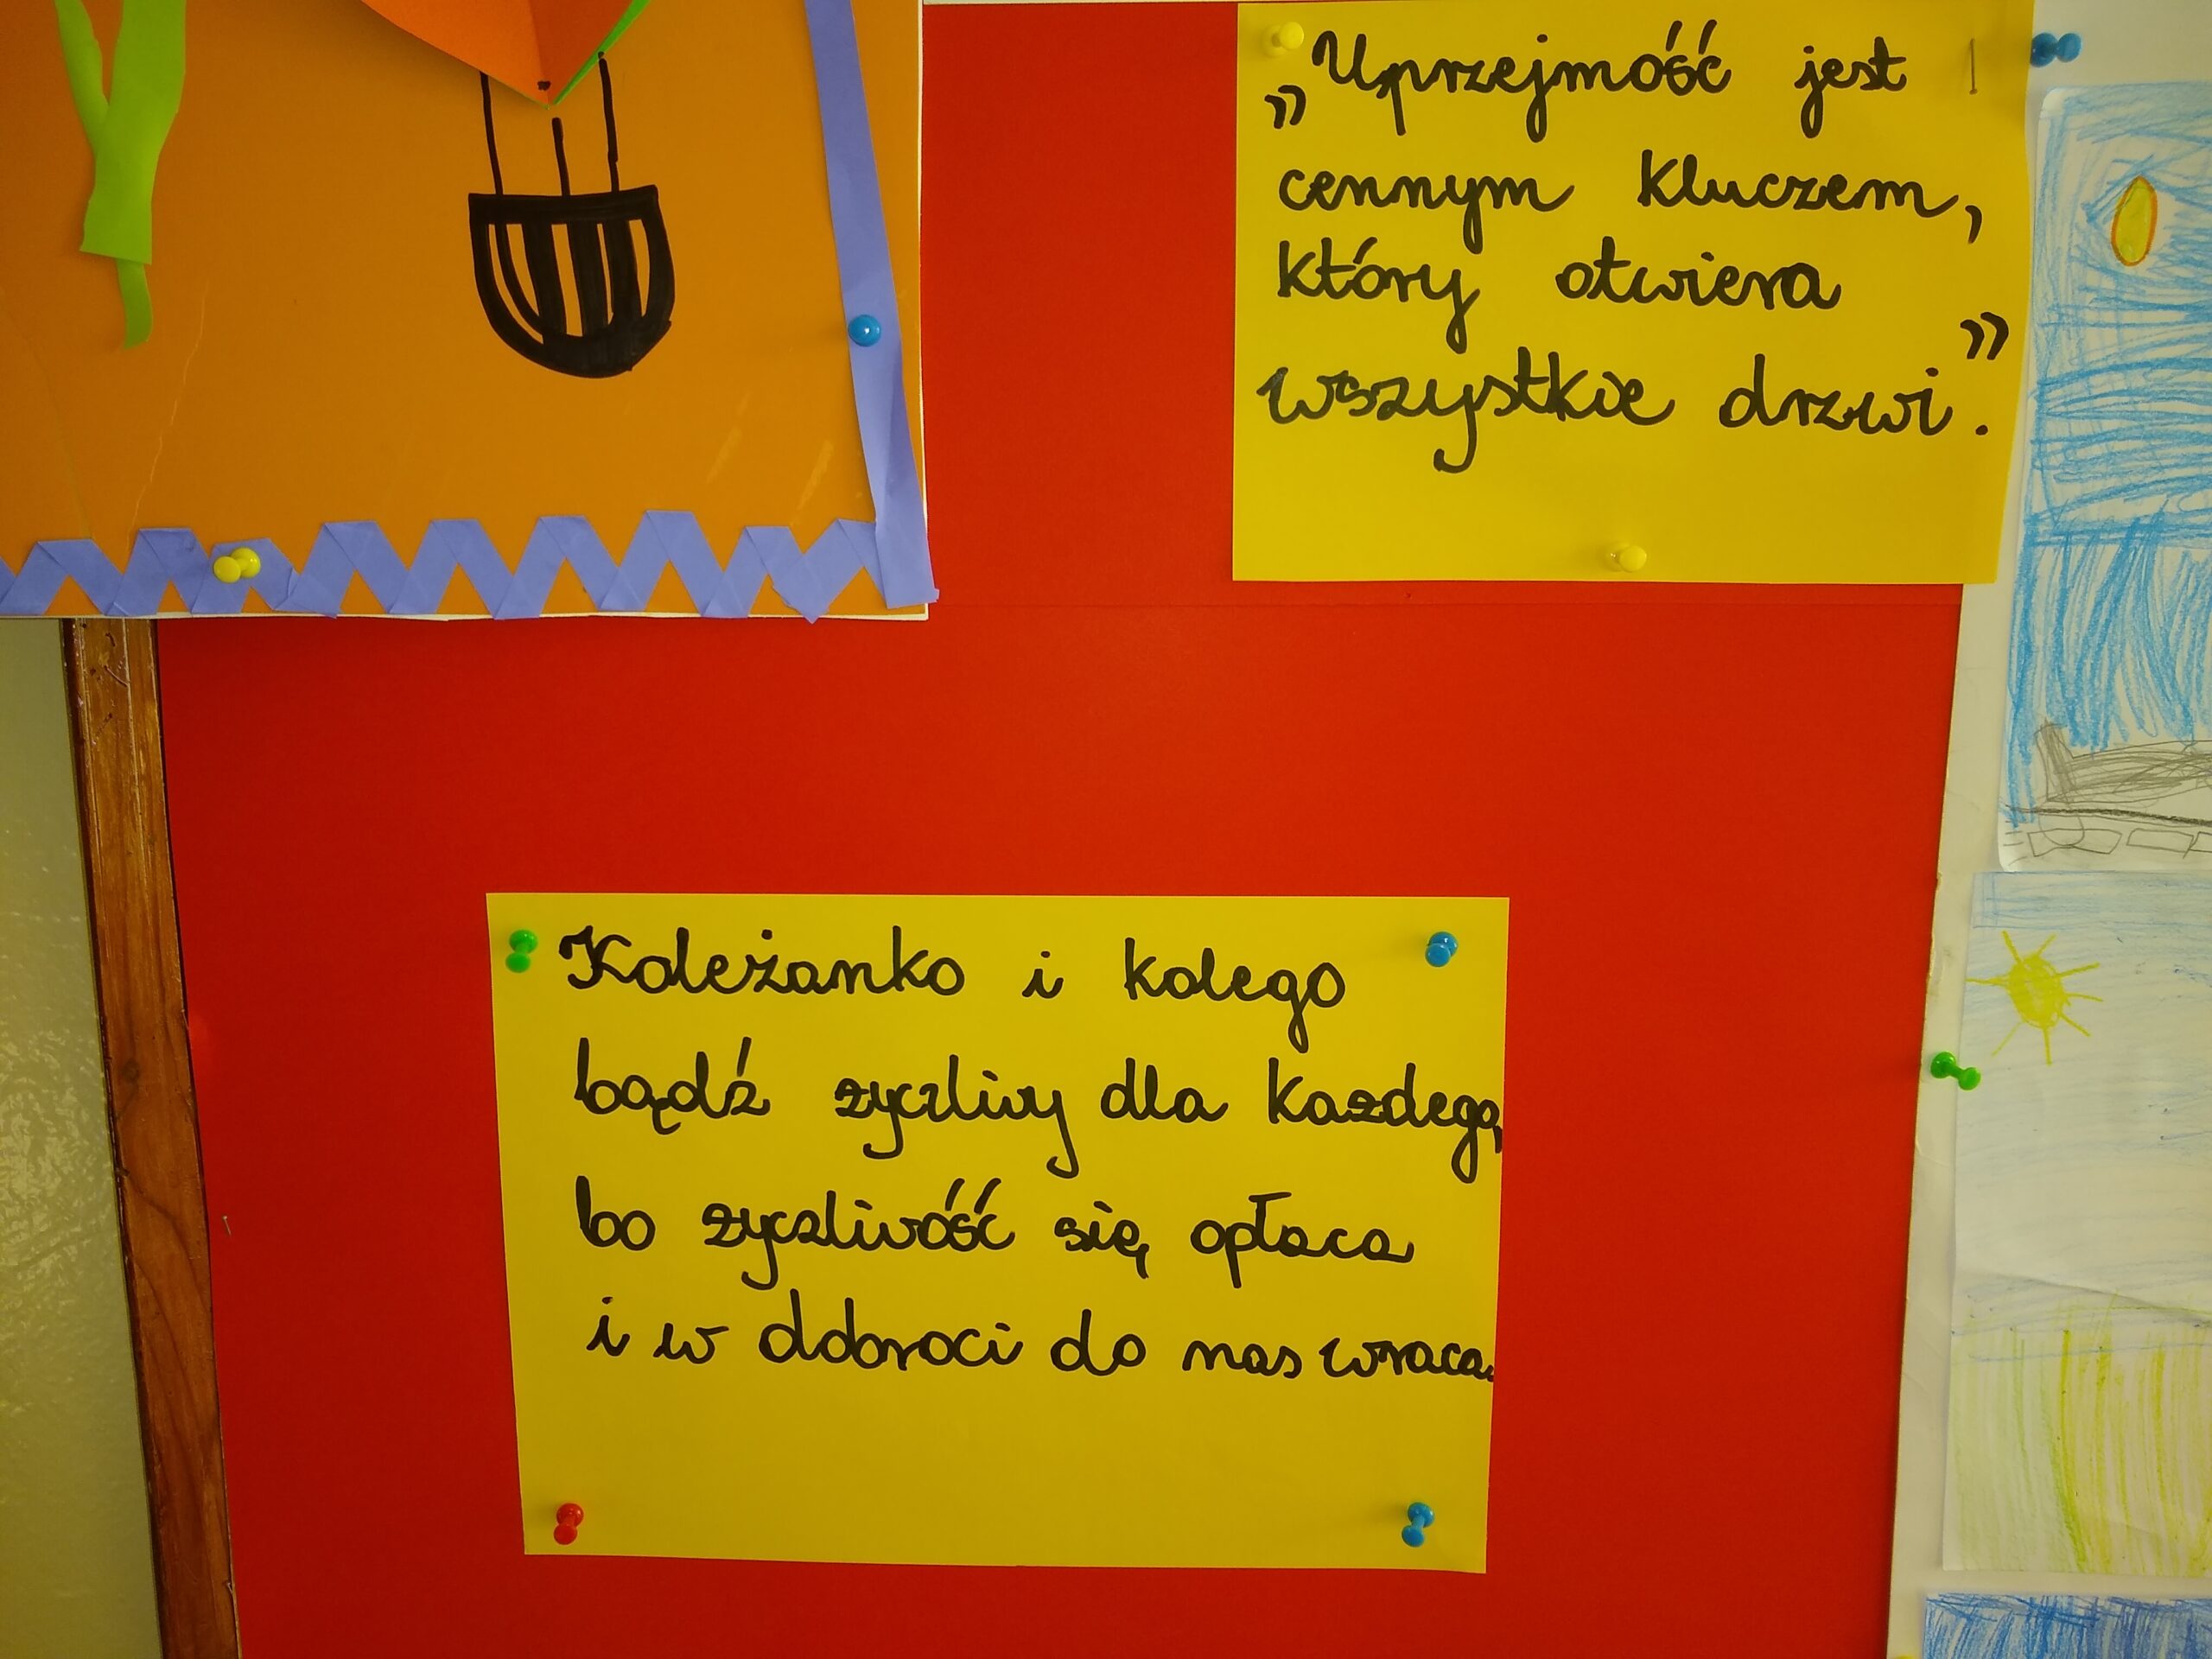 „Uprzejmość jest
cennym kluczem,
który otwiera
wszystkie drzwi.”
Koleżanko i kolego
bądź życzliwy dla każdego,
bo życzliwość się opłaca
i w dobroci do nas wraca.